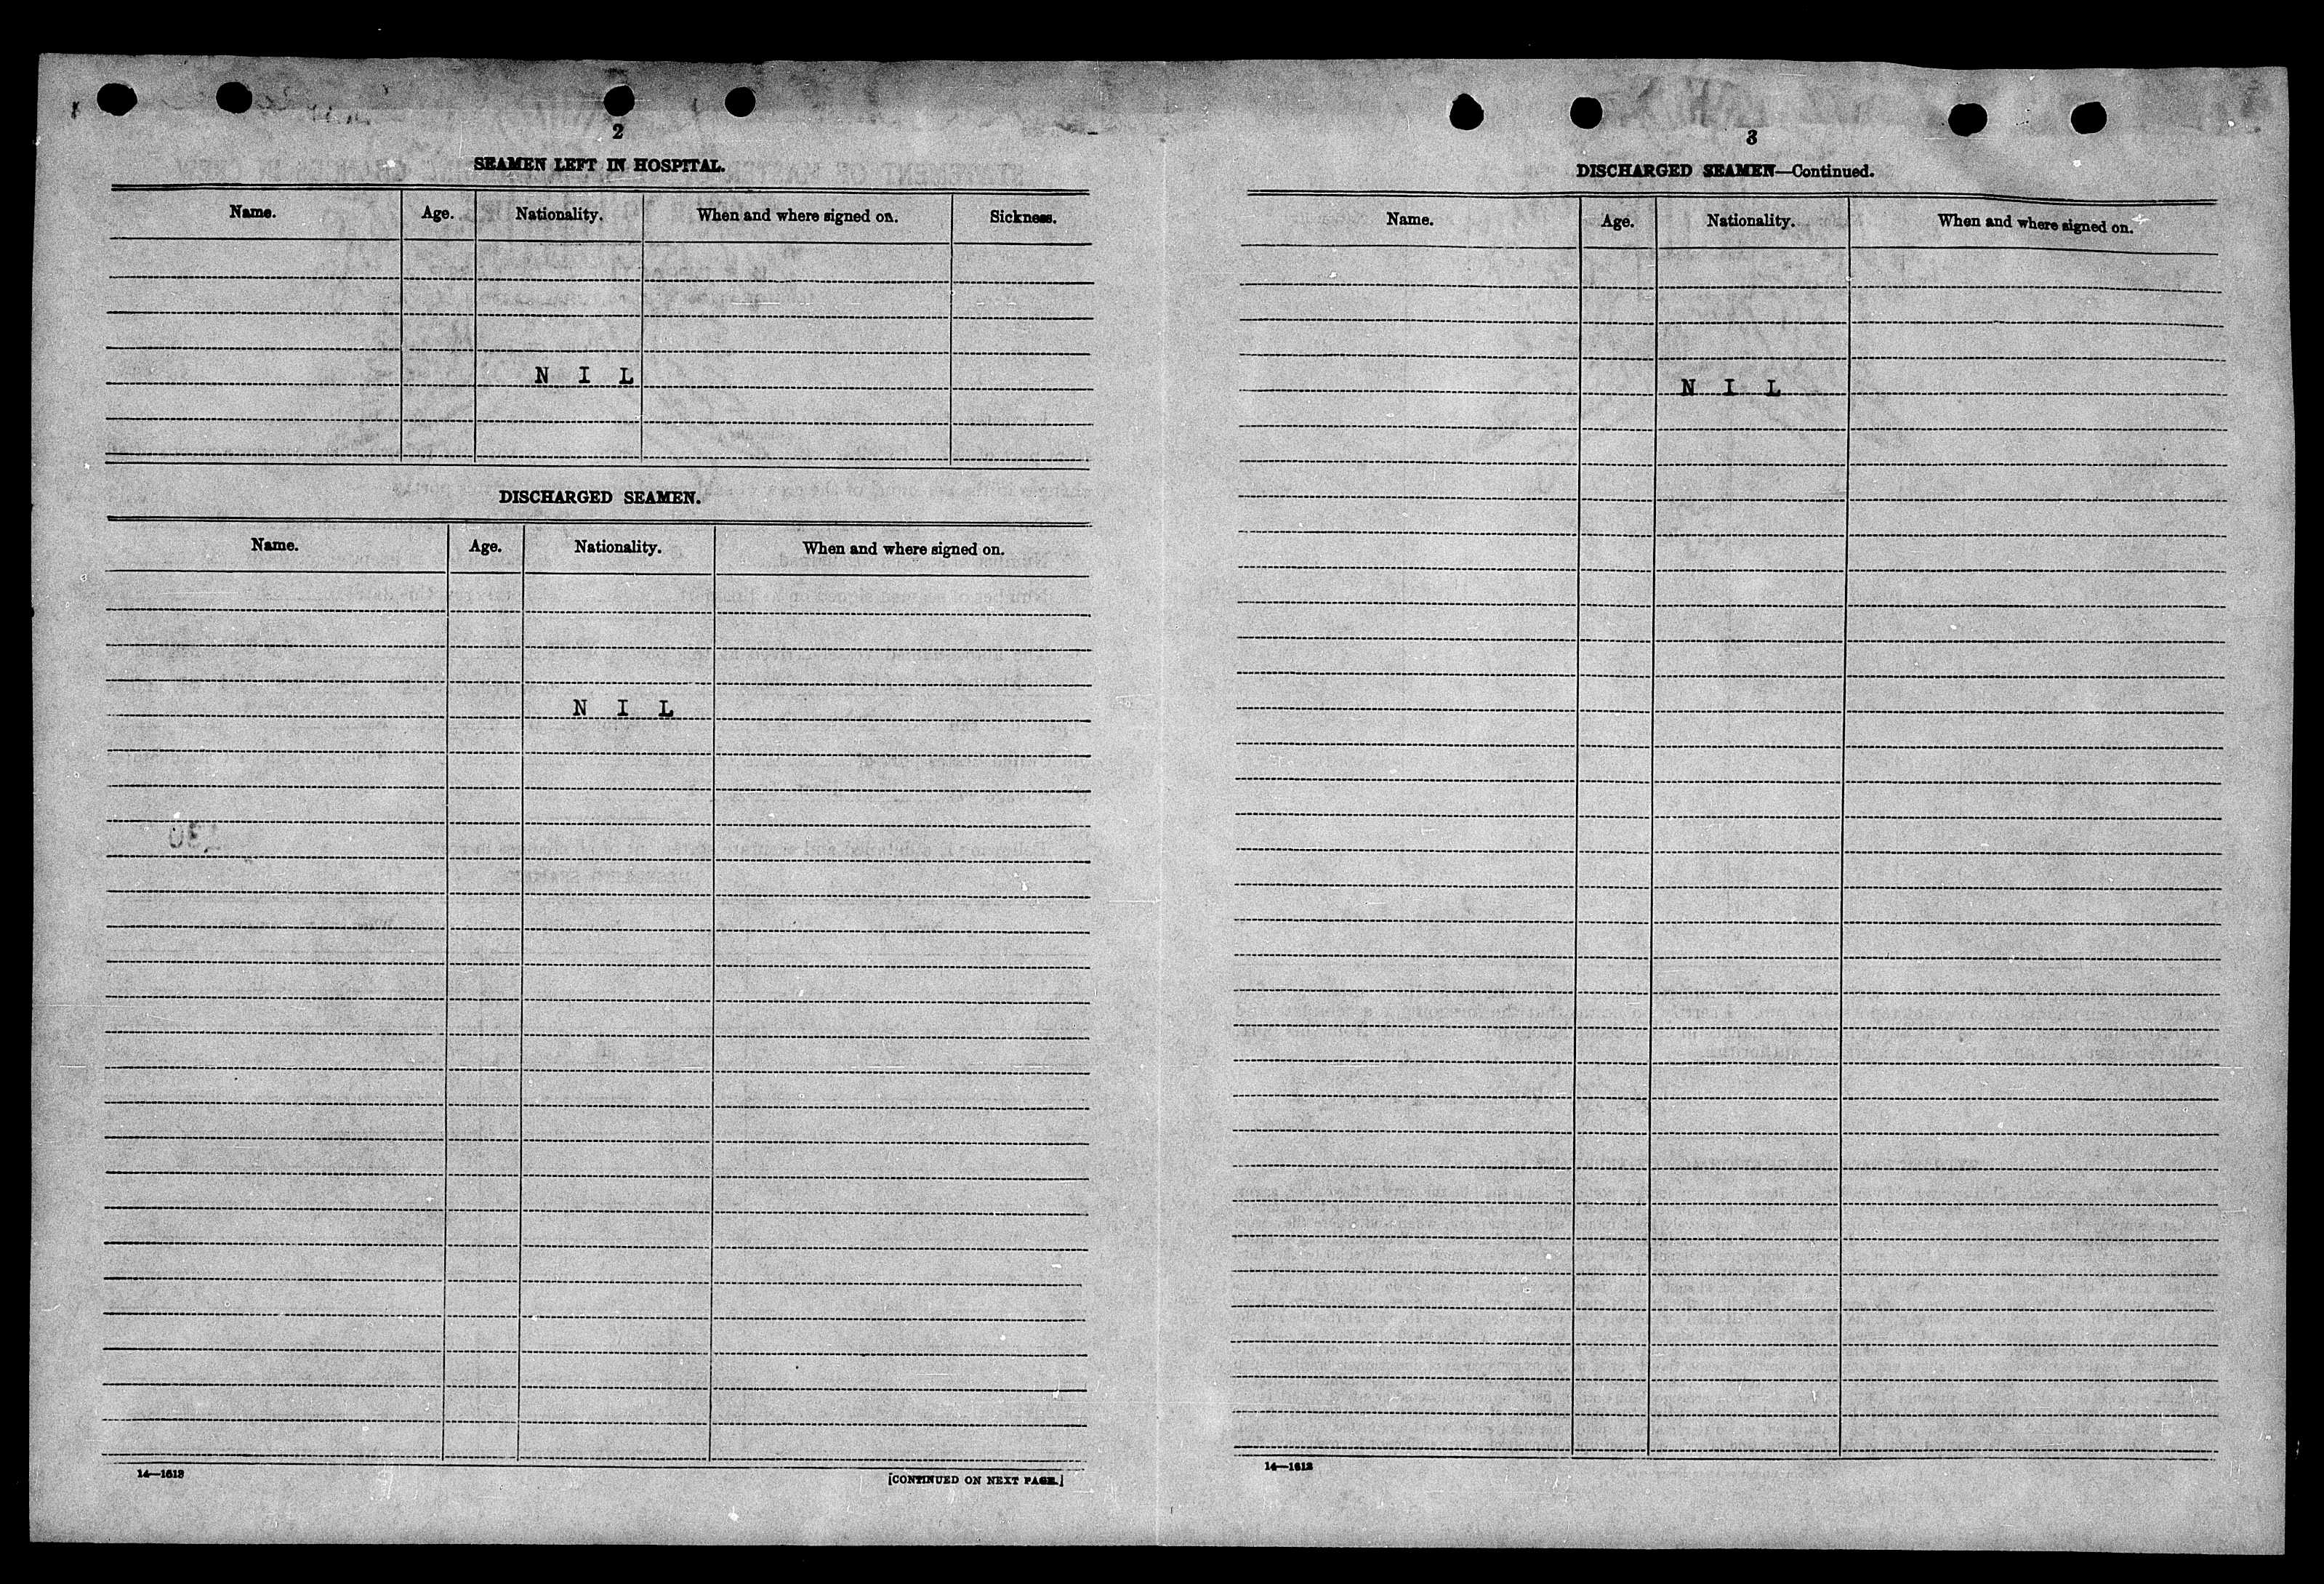 2
SEAMEN LEFT IN HOSPITAL.
Name. Age. Nationality. When and where signed on. Sickness.
N I L
DISCHARGED SEAMEN.
Name. Age. Nationality. When and where signed on.
N I L
14—1613
[CONTINUED ON NEXT PAGE.]
3
DISCHARGED SEAMEN—Continued.
Name. Age. Nationality. When and where signed on.
N I L
14—1613